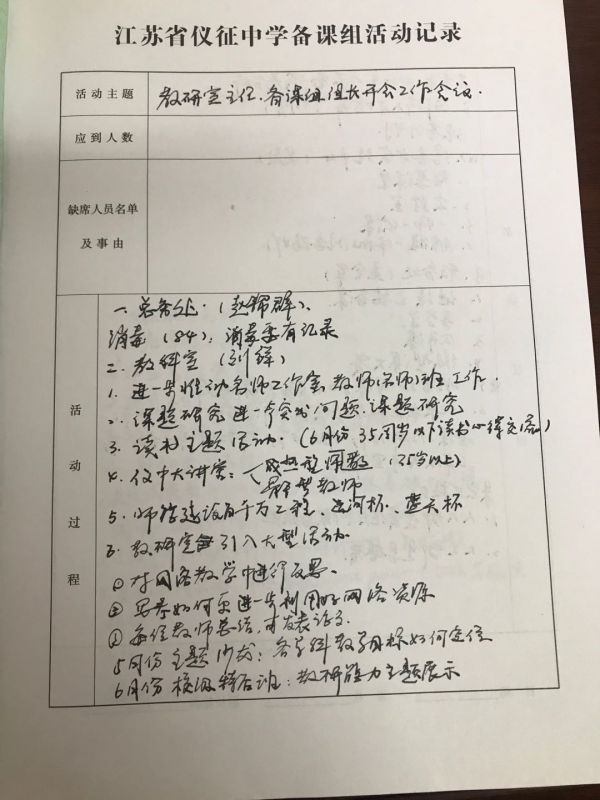 江苏省仪征中学备课组活动记录
活动主题
教研室主任、备课组组长开会工作会议.
应到人数
缺席人员名单
及事由
活动过程
一. 总务处.(赵锦群)、
消毒(84), 消毒要有记录
二. 教科室(刘锋)
1. 进一步推动名师工作室, 教师(名师)班工作.
2. 课题研究进一步突出问题、课题研究
3. 读书主题活动.(6月份 35周岁以下读书心得交流)
4. 仪中大讲堂: 成熟型师教 (35岁以上)
教师
5. 师资建设百千万工程、运河杯、蓝天杯
3. 教研室 引入大型活动
① 对网络教学中进行反思.
② 思考如何更进一步利用好网络资源
③ 每位教师总结,
5月份主题沙龙: 各学科教学目标如何定位
6月份 校级特后班: 教研能力主题展示